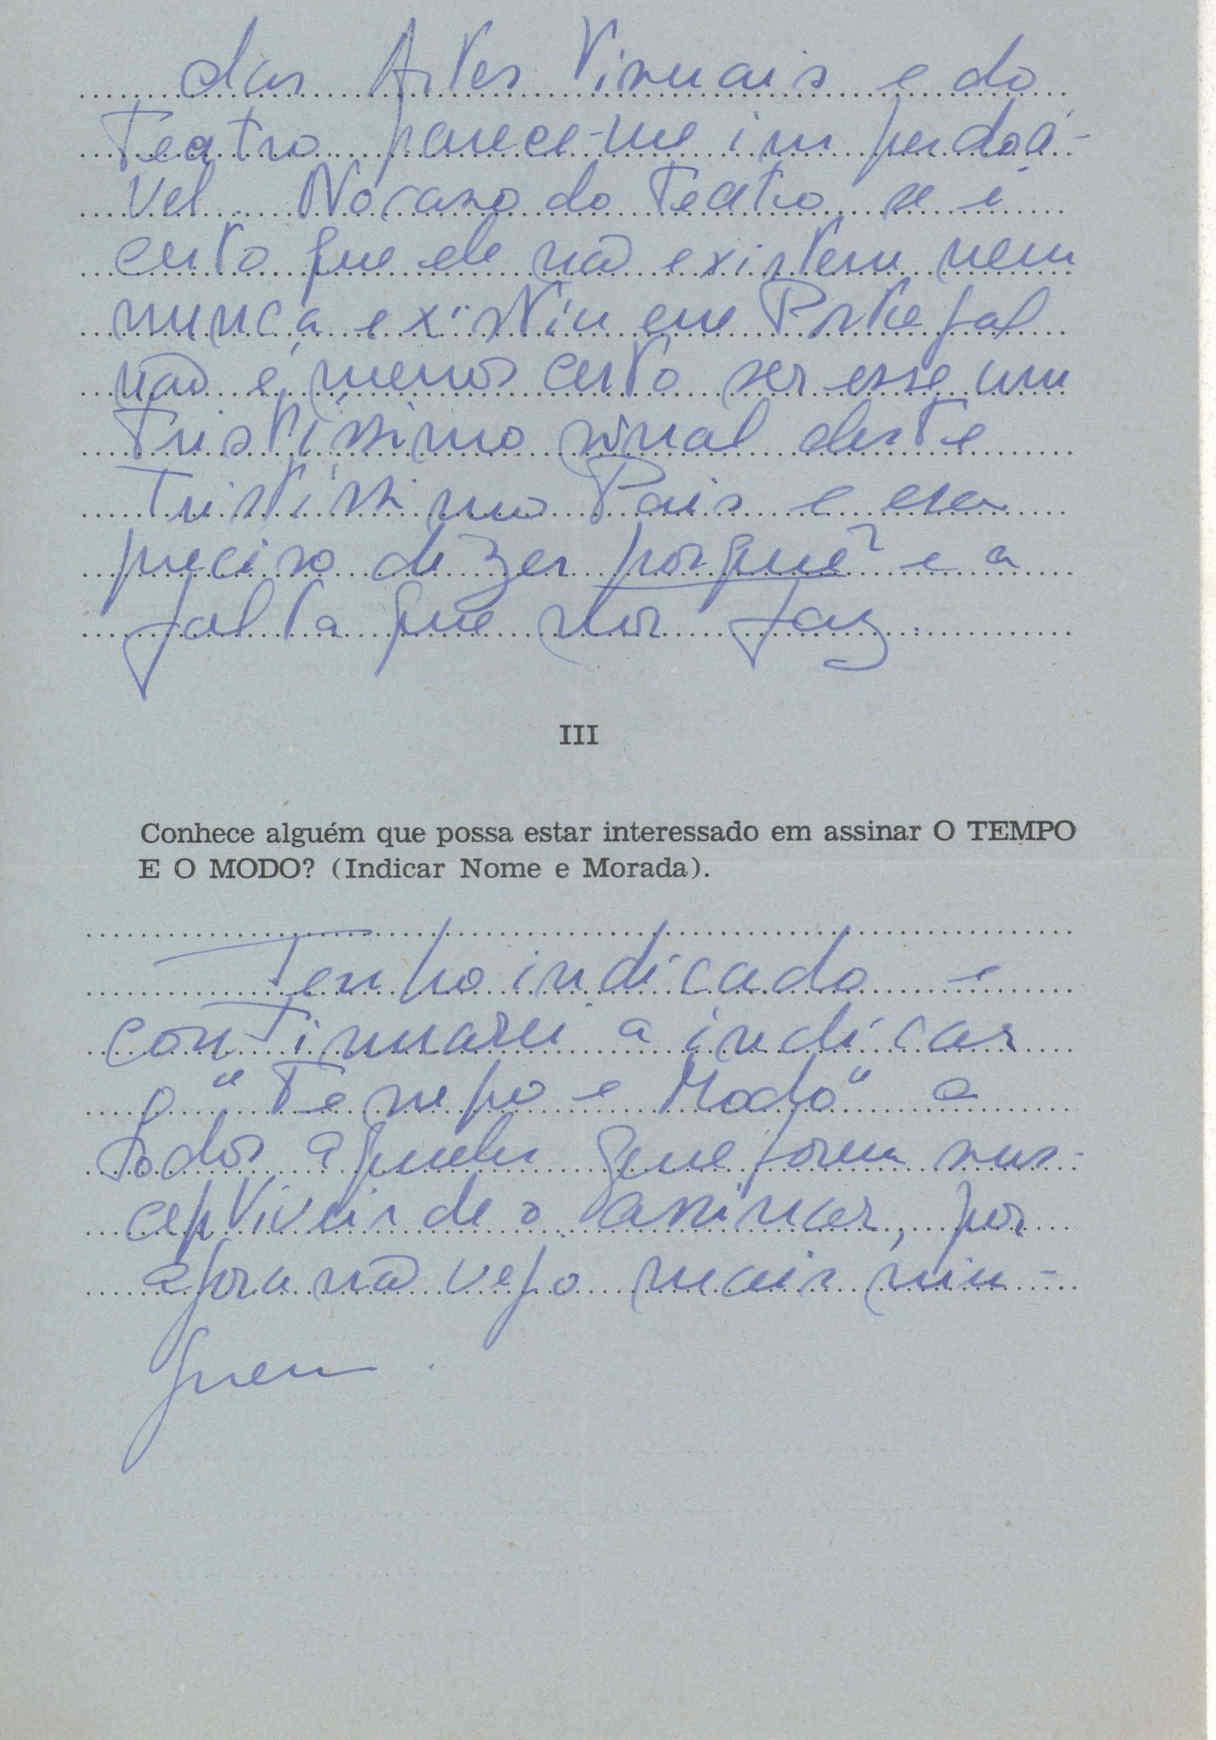 das Artes Visuais e do
Teatro parece-me imperdoá-
vel. No caso do Teatro, se é
certo que ele não existem nem
nunca existiu em Portugal
não é menos certo ser esse um
tristíssimo sinal deste
tristíssimo País e era
preciso dizer porquê e a
falta que nos faz.
III
Conhece alguém que possa estar interessado em assinar O TEMPO
E O MODO? (Indicar Nome e Morada).
Tenho indicado e
continuarei a indicar
o "Tempo e Modo" a
todos aqueles que forem sus-
ceptíveis de o assinar, por
agora não vejo mais nin-
guem.